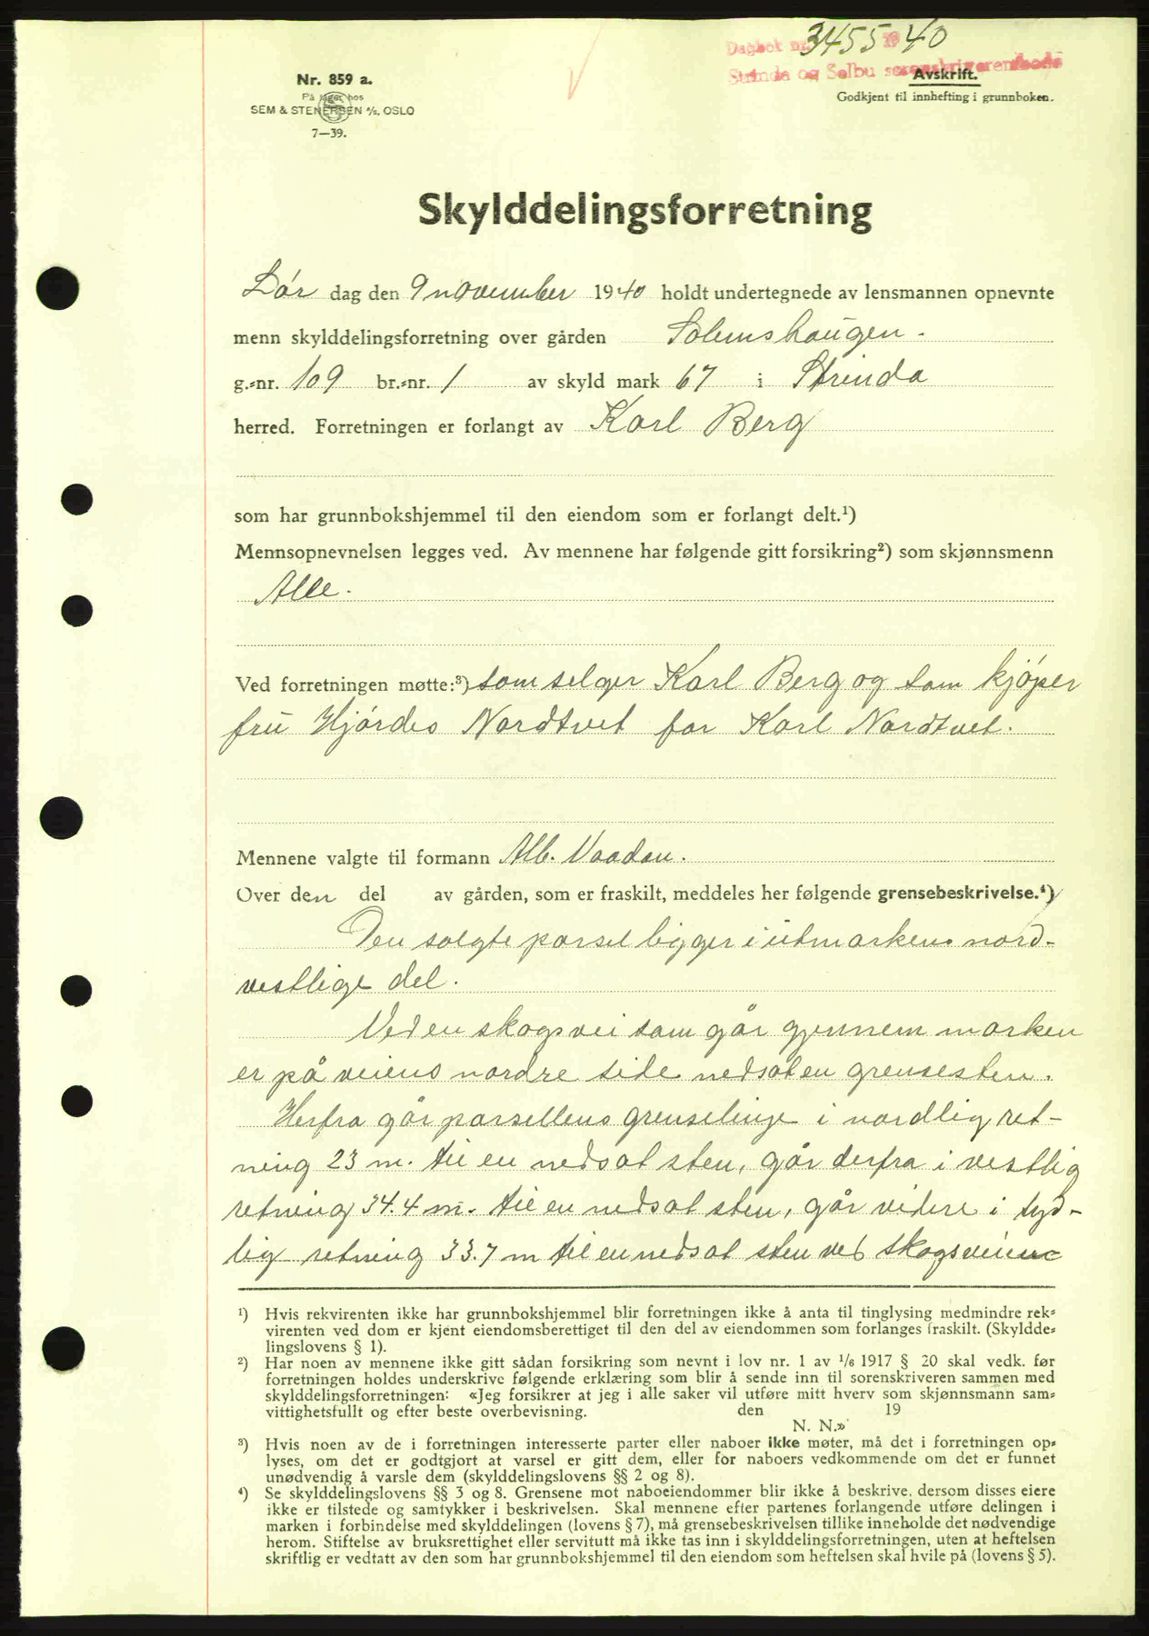 Dagbok nr. 3455 1940
Strinda og Selbu sorenskriverembede
Nr. 859 a.
På lager hos
SEM & STENERSEN A/S, OSLO
7—39.
Avskrift.
Godkjent til innhefting i grunnboken.
Skylddelingsforretning
Lør dag den 9 november 1940 holdt undertegnede av lensmannen opnevnte
menn skylddelingsforretning over gården Solemshaugen.
g.-nr. 109 br.-nr. 1 av skyld mark 67 i Strinda
herred. Forretningen er forlangt av Karl Berg
som har grunnbokshjemmel til den eiendom som er forlangt delt.¹)
Mennsopnevnelsen legges ved. Av mennene har følgende gitt forsikring²) som skjønnsmenn
Alle.
Ved forretningen møtte:³) som selger Karl Berg og som kjøper
fru Hjørdes Nordtvet for Karl Nordtvet.
Mennene valgte til formann Alb. Vaadan.
Over den del av gården, som er fraskilt, meddeles her følgende grensebeskrivelse.⁴)
Den solgte parsel ligger i utmarkens nord-
vestlige del.
Ved en skogsvei som går gjennem marken
er på veiens nordre side nedsat en grensesten.
Herfra går parsellens grenselinje i nordlig ret-
ning 23 m. til en nedsat sten, går derfra i vestlig
retning 34.4 m. til en nedsat sten, går videre i syd-
lig retning 33.7 m til en nedsat sten ved skogsveiens
¹) Hvis rekvirenten ikke har grunnbokshjemmel blir forretningen ikke å anta til tinglysing medmindre rek-
virenten ved dom er kjent eiendomsberettiget til den del av eiendommen som forlanges fraskilt. (Skyldde-
lingslovens § 1).
²) Har noen av mennene ikke gitt sådan forsikring som nevnt i lov nr. 1 av 1/6 1917 § 20 skal vedk. før
forretningen holdes underskrive følgende erklæring som blir å sende inn til sorenskriveren sammen med
skylddelingsforretningen: «Jeg forsikrer at jeg i alle saker vil utføre mitt hverv som skjønnsmann sam-
vittighetsfullt og efter beste overbevisning. den 19
N. N.»
³) Hvis noen av de i forretningen interesserte parter eller naboer ikke møter, må det i forretningen op-
lyses, om det er godtgjort at varsel er gitt dem, eller for naboers vedkommende om det er funnet
unødvendig å varsle dem (skylddelingslovens §§ 2 og 8).
⁴) Se skylddelingslovens §§ 3 og 8. Grensene mot naboeiendommer blir ikke å beskrive, dersom disses eiere
ikke er tilstede og samtykker i beskrivelsen. Skal mennene efter partenes forlangende utføre delingen i
marken i forbindelse med skylddelingen (lovens § 7), må grensebeskrivelsen tillike inneholde det nødvendige
herom. Stiftelse av bruksrettighet eller servitutt må ikke tas inn i skylddelingsforretningen, uten at heftelsen
skriftlig er vedtatt av den som har grunnbokshjemmel til den eiendom som heftelsen skal hvile på (lovens § 5).